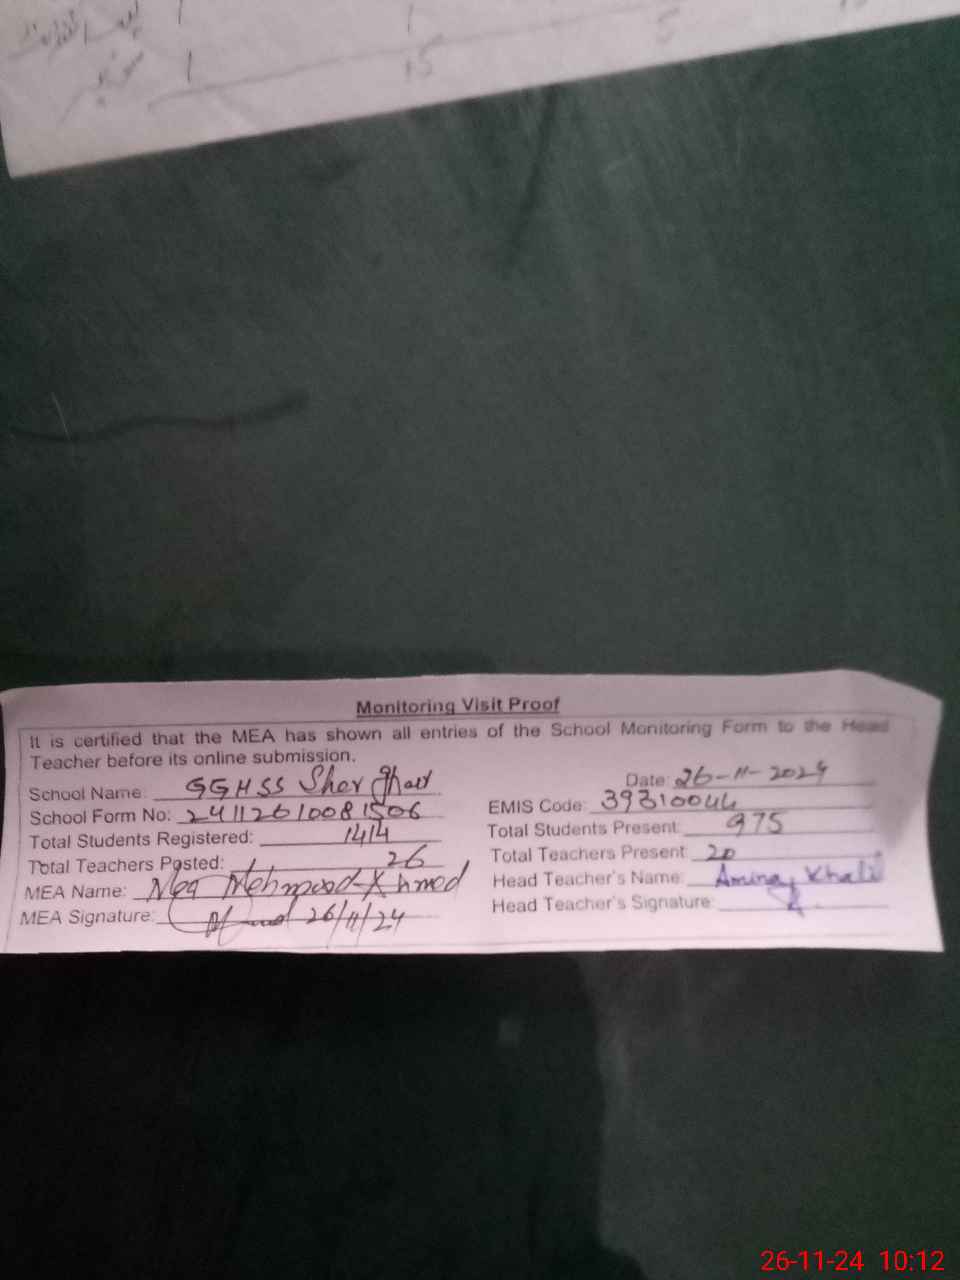 1 1 5
1 15
Monitoring Visit Proof
It is certified that the MEA has shown all entries of the School Monitoring Form to the Head
Teacher before its online submission.
School Name: GGHSS Sher Ghar
Date: 26-11-2024
School Form No: 24112610081506
EMIS Code: 39310044
Total Students Registered: 1414
Total Students Present: 975
Total Teachers Posted: 26
Total Teachers Present: 20
MEA Name: Mehmood Ahmed
Head Teacher's Name: Amina Khalil
MEA Signature: 26/11/24
Head Teacher's Signature:
26-11-24 10:12